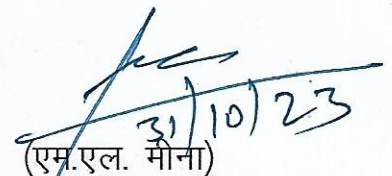 31/10/23
(एम.एल. मीना)